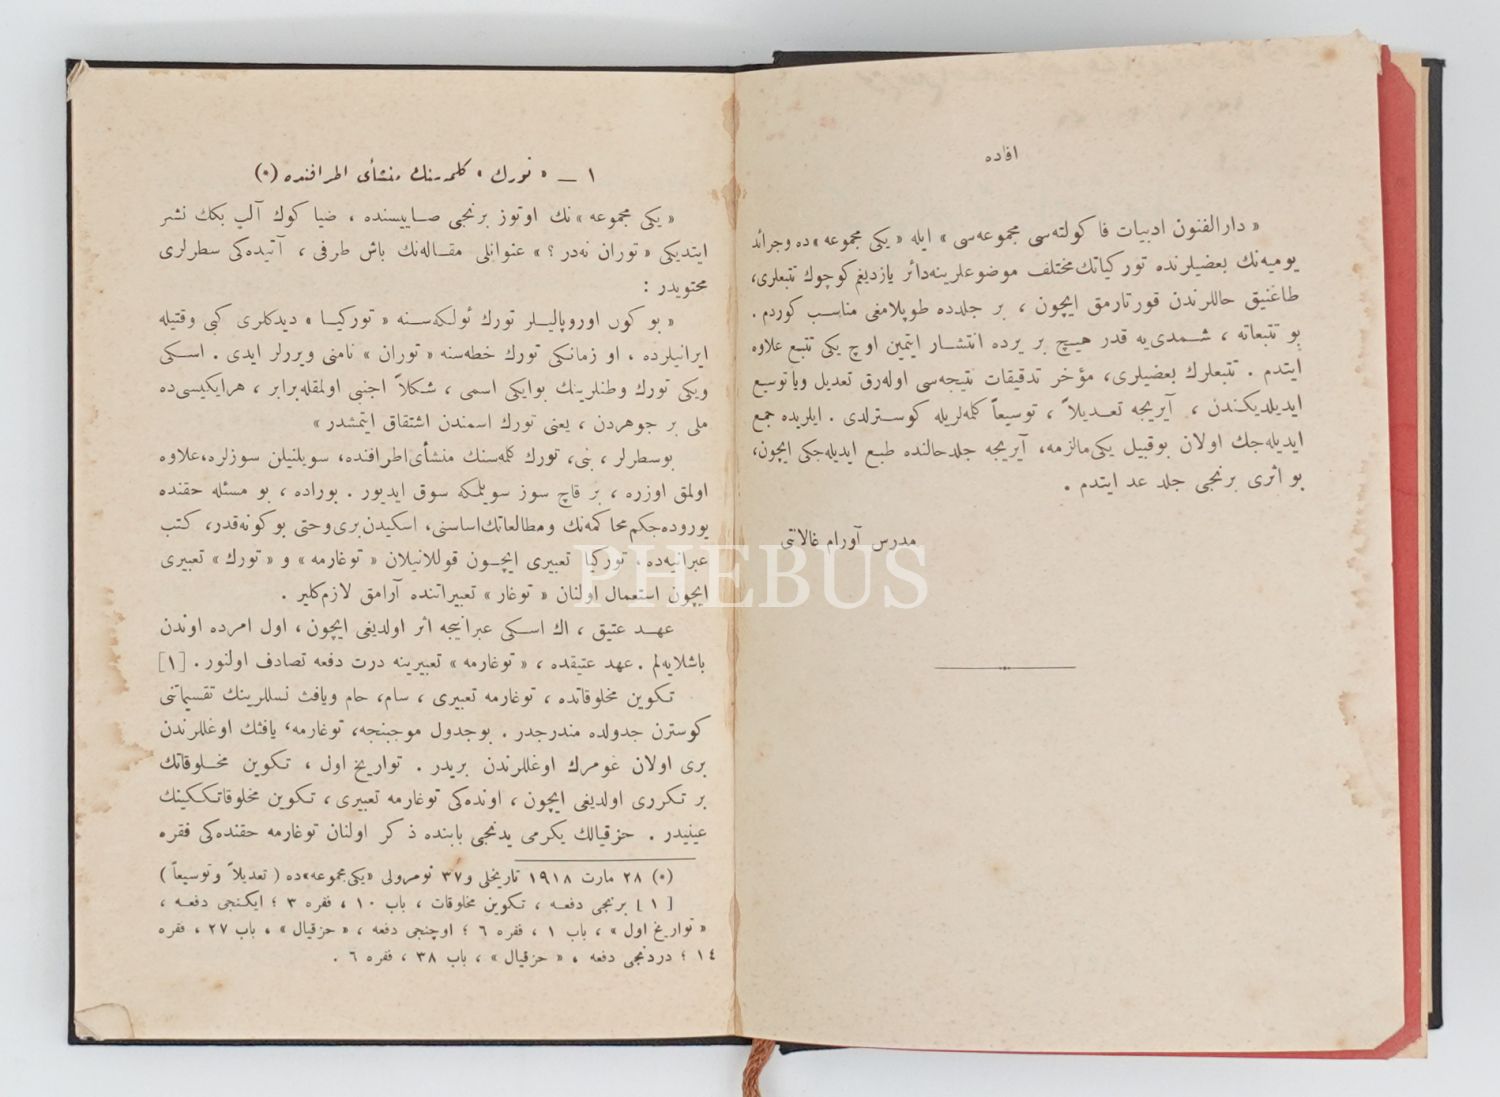 افاده
« دارالفنون ادبیات فاكولته‌سی مجموعه‌سی » ایله « یكی مجموعه »ده وجرائد
یومیه‌نك بعضیلرنده توركیاتك مختلف موضوعلرینه‌دائر یازدیغم كوچوك تتبعلری،
طاغنیق حاللرندن قورتارمق ایچون ، بر جلدده طوپلامغی مناسب كوردم .
بو تتبعاته ، شمدی‌یه قدر هیچ بر یرده انتشار ایتمین اوچ یكی تتبع علاوه
ایتدم . تتبعلرك بعضیلری، مؤخر تدقیقات نتیجه‌سی اوله‌رق تعدیل ویا توسیع
ایدیلدیكندن ، آیریجه تعدیلاً ، توسیعاً كله‌لریله كوسترلدی . ایلریده جمع
ایدیله‌جك اولان بوقبیل یكی‌مالزمه، آیریجه جلدحالنده طبع ایدیله‌جكی ایچون،
بو اثری برنجی جلد عد ایتدم .
مدرس آورام غالانتی
١ — « تورك » كلمه‌سنك منشأی اطرافنده (*)
« یكی مجموعه »نك اوتوز برنجی صاییسنده ، ضیا كوك آلپ بكك نشر
ایتدیكی « توران نه‌در ؟ » عنوانلی مقاله‌نك باش طرفی ، آتیده‌كی سطرلری
محتویدر :
« بو كون اوروپالیلر تورك ئولكه‌سنه « توركیا » دیدكلری كبی وقتیله
ایرانیلرده ، او زمانكی تورك خطه‌سنه « توران » نامنی ویررلر ایدی . اسكی
ویكی تورك وطنلرینك بوایكی اسمی ، شكلاً اجنبی اولمقله‌برابر ، هرایكیسی‌ده
ملی بر جوهردن ، یعنی تورك اسمندن اشتقاق ایتمشدر »
بوسطرلر ، بنی، تورك كله‌سنك منشأی‌اطرافنده، سویلنیلن سوزلره،علاوه
اولمق اوزره ، بر قاچ سوز سویلمكه سوق ایدیور . بوراده ، بو مسئله حقنده
یوروده‌جكم‌محاكمه‌نك ومطالعاتك‌اساسنی، اسكیدن‌بری‌وحتی بوكونه‌قدر، كتب
عبرانیه‌ده، توركیا تعبیری ایچون قوللانیلان « توغارمه » و « تورك » تعبیری
ایچون استعمال اولنان « توغار » تعبیراتنده آرامق لازم‌كلیر .
عهد عتیق ، اك اسكی عبرانیجه اثر اولدیغی ایچون، اول امرده اوندن
باشلایه‌لم . عهد عتیقده ، « توغارمه » تعبیرینه درت دفعه تصادف اولنور . [١]
تكوین مخلوقاتده ، توغارمه تعبیری ، سام، حام ویافث نسللرینك تقسیماتنی
كوسترن جدولده مندرجدر . بوجدول موجبنجه، توغارمه، یافثك اوغللرندن
بری اولان غومرك اوغللرندن بریدر . تواریخ اول ، تكوین مخلوقاتك
بر تكرری اولدیغی ایچون ، اونده‌كی توغارمه تعبیری، تكوین مخلوقاتككینك
عینیدر . حزقیالك یكرمی یدنجی بابنده ذكر اولنان توغارمه حقنده‌كی فقره
(*) ٢٨ مارت ١٩١٨ تاریخلی و٣٧ نومرولی «یكی‌مجموعه»ده ( تعدیلاً وتوسیعاً )
[ ١ ] برنجی دفعه ، تكوین مخلوقات ، باب ١٠ ، فقره ٣ ؛ ایكنجی دفعه ،
« تواریخ اول » ، باب ١ ، فقره ٦ ؛ اوچنجی دفعه ، « حزقیال » ، باب ٢٧ ، فقره
١٤ ؛ دردنجی دفعه ، « حزقیال » ، باب ٣٨ ، فقره ٦ .
PHEBUS